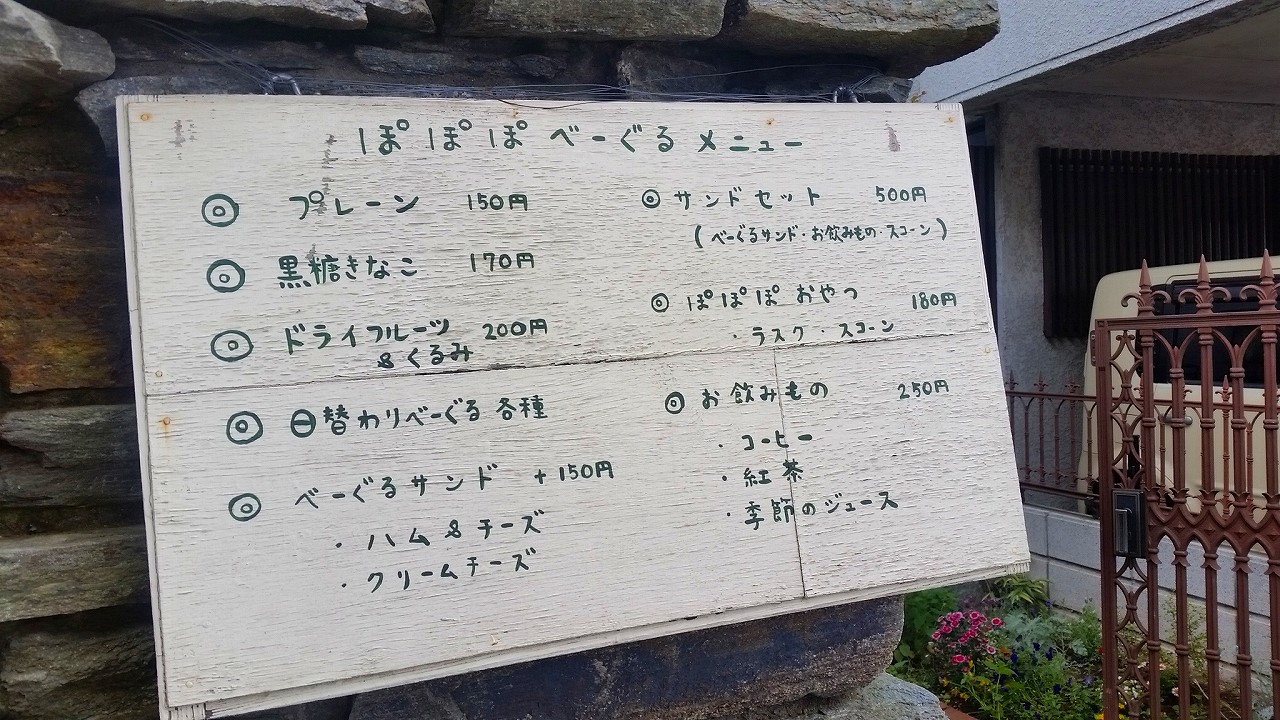 ぽぽぽべーぐるメニュー
◎ プレーン 150円
◎ 黒糖きなこ 170円
◎ ドライフルーツ 200円
&くるみ
◎ 日替わりべーぐる各種
◎ べーぐるサンド +150円
・ハム&チーズ
・クリームチーズ
◎ サンドセット 500円
(べーぐるサンド・お飲みもの・スコーン)
◎ ぽぽぽおやつ 180円
・ラスク・スコーン
◎ お飲みもの 250円
・コーヒー
・紅茶
・季節のジュース